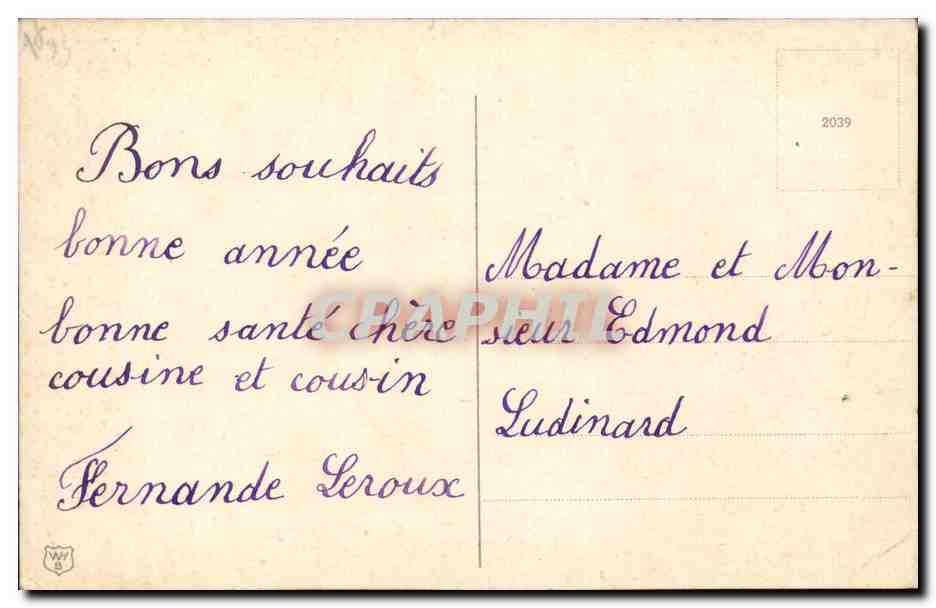 2039
Bons souhaits
bonne année
bonne santé chère
cousine et cousin
Fernande Leroux
Madame et Mon-
sieur Edmond
Ludinard
CPAPHIL
WW
B